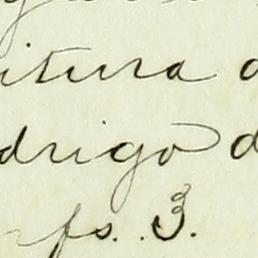 itura d
drigo d
fs. 3.